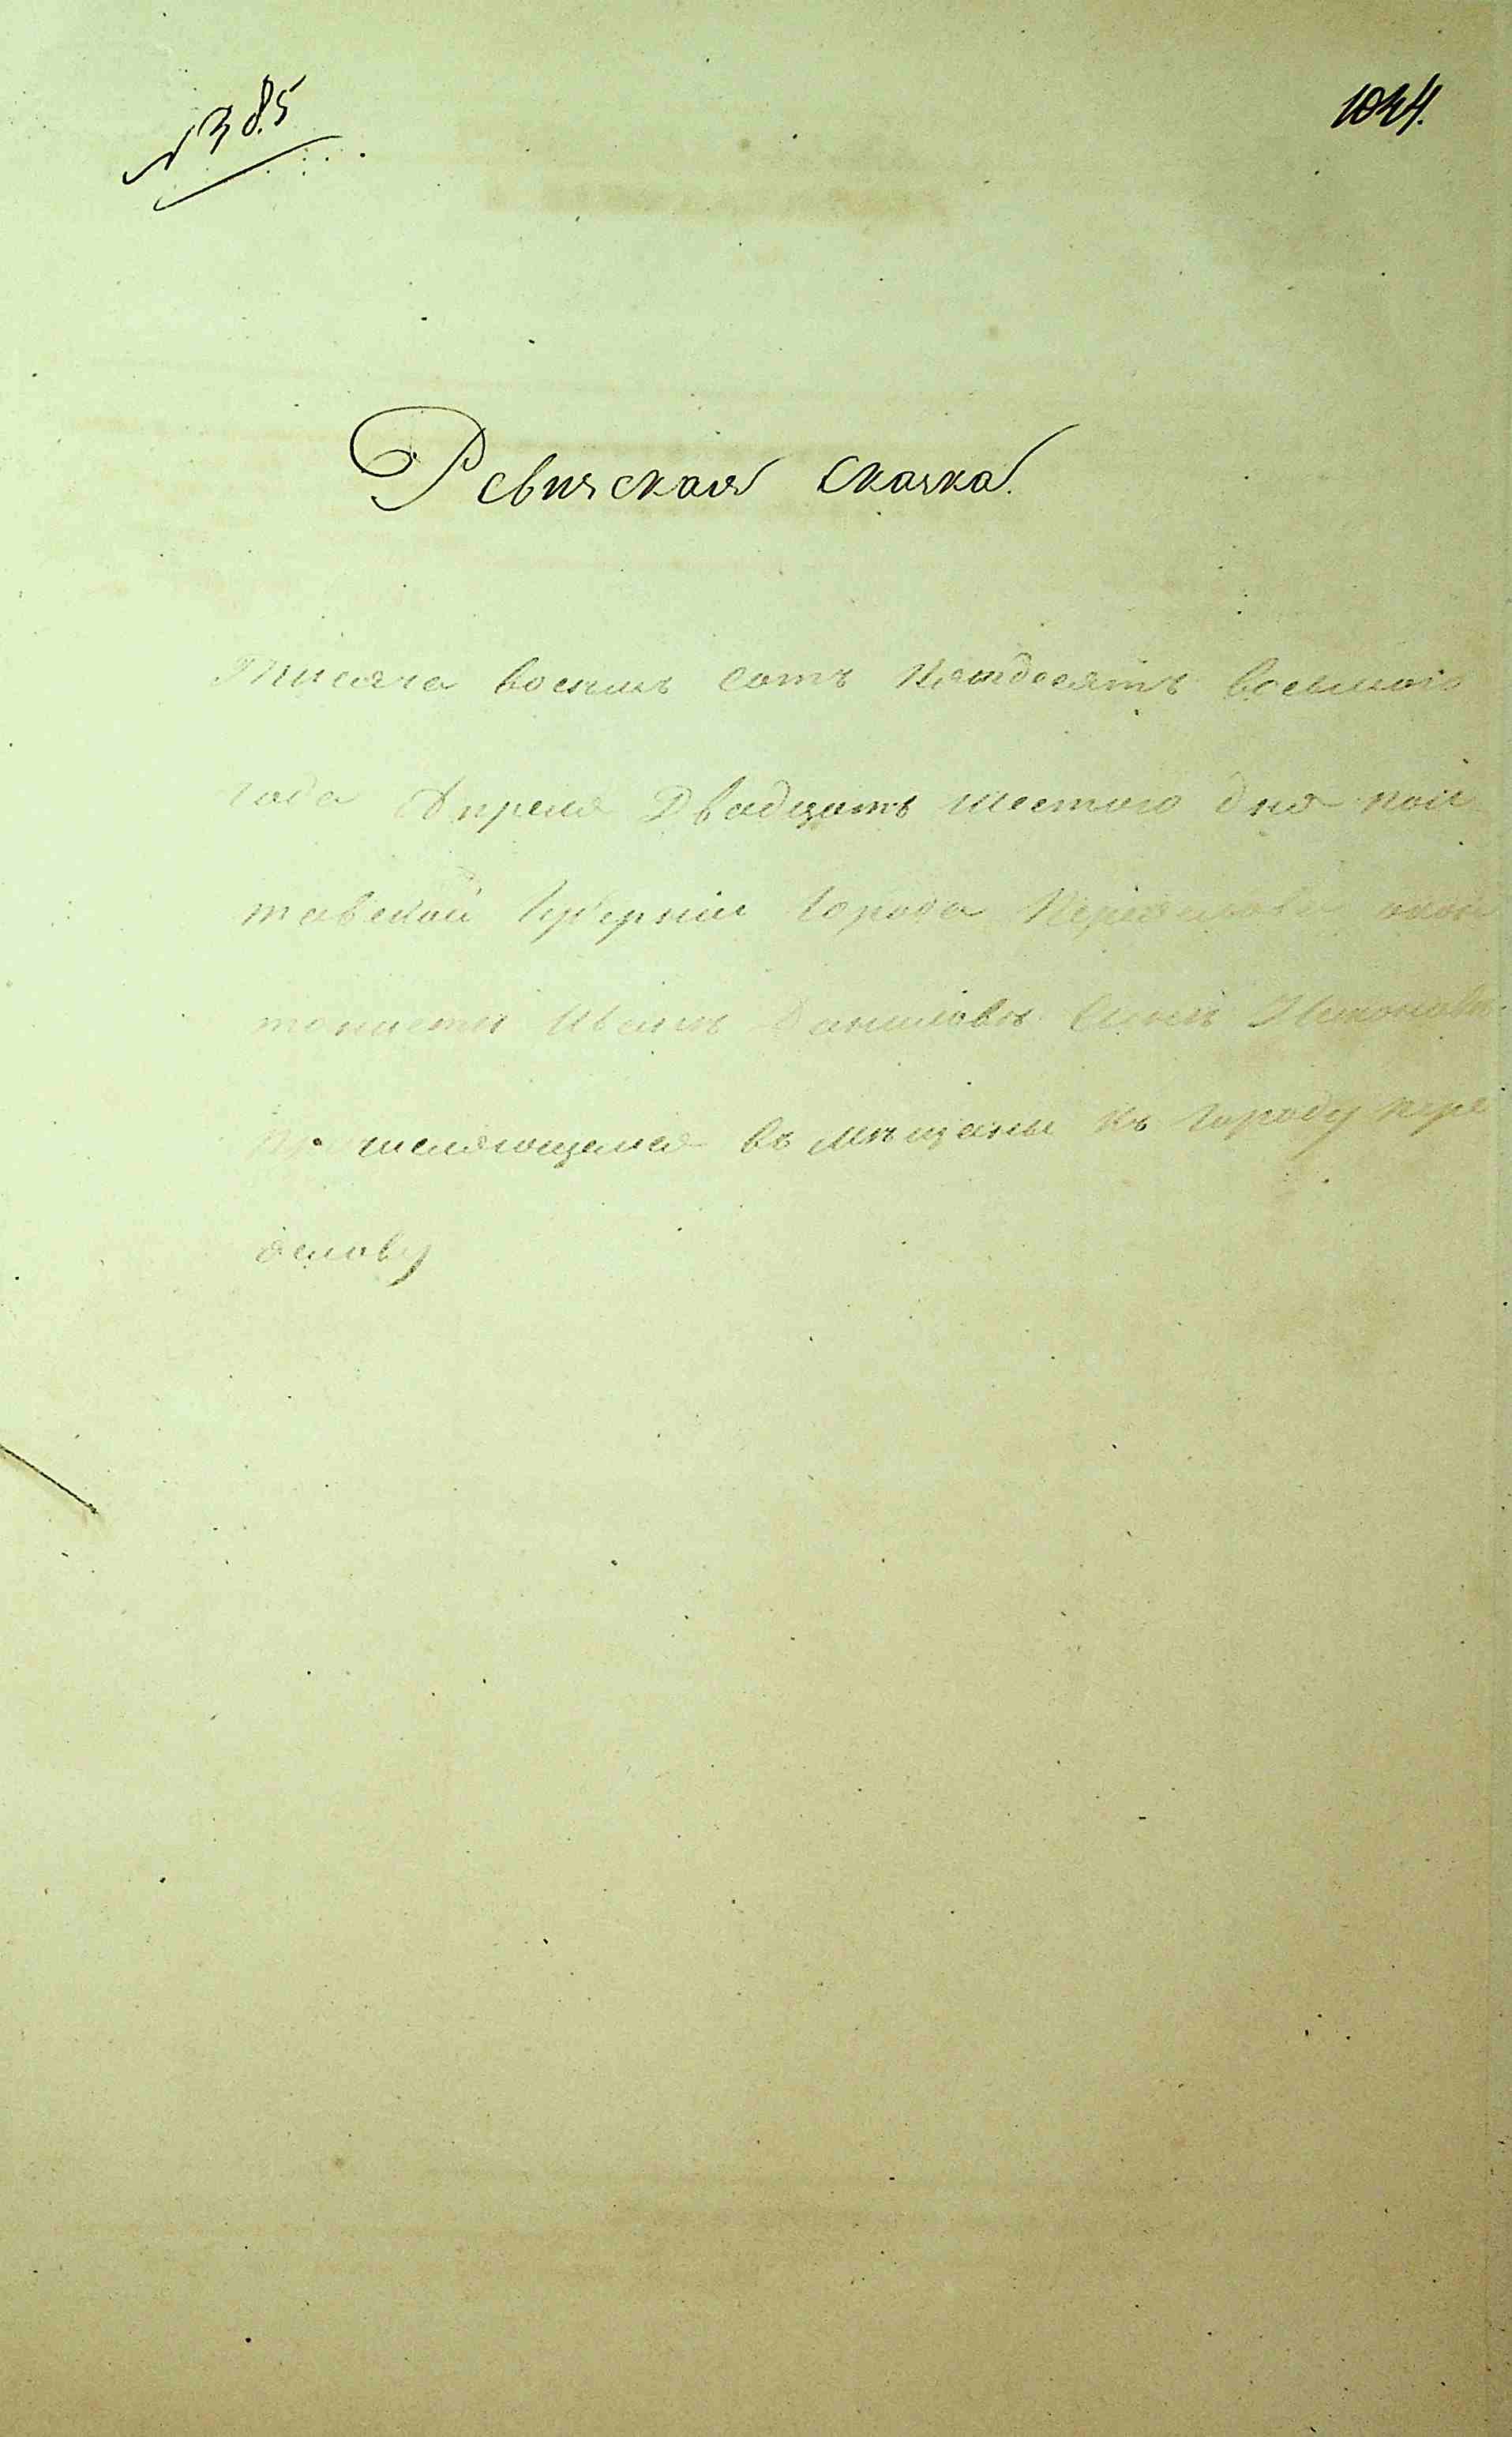 № 385
1024.
Ревизская Сказка.
Тисяча восемь сотъ Пятдесятъ восьмого
года Апреля Двадцать шестого дня Пол
тавской Губерніи Города Переяслова
Иванъ Даниловъ Синъ
числяющемся въ мѣщаны къ Городу Пере
яслову